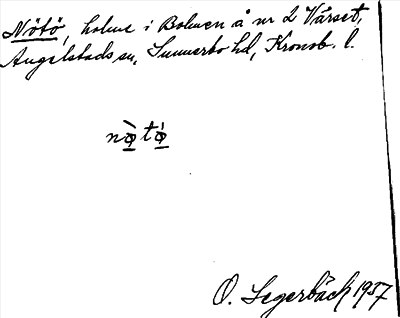 Nötö, holme i Bolmen å nr 2 Vårset,
Angelstads sn, Sunnerbo hd, Kronob. l.
nø̀tø̀
O. Segerbäck 1937